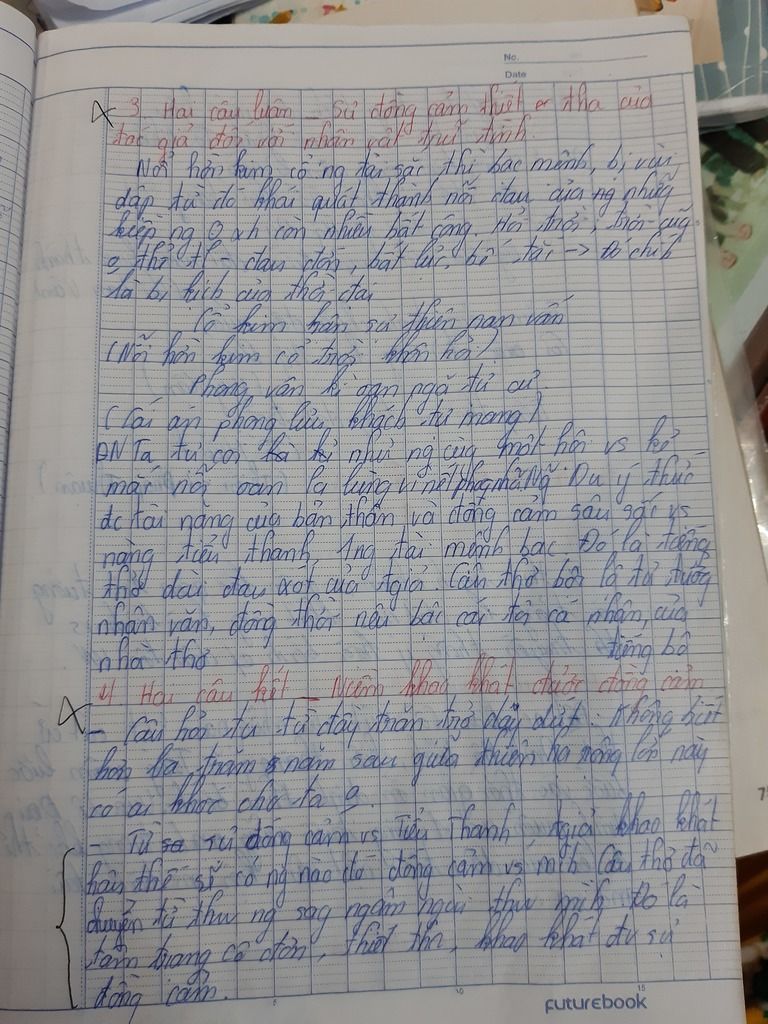 No.
Date
3. Hai câu luận _ Sự đồng cảm thiết tha của
tác giả đối với nhân vật trữ tình.
Nỗi hờn kim cổ ng tài sắc thì bạc mệnh, bị vùi
dập từ đó khái quát thành nỗi đau của ng những
kiếp ng xh còn nhiều bất công. Hỏi trời, trời cũg
o thể tl - đau đớn, bất lực, bế tắc -> Đó chíh
là bi kịch của thời đại
Cổ kim hận sự thiên nan vấn
(Nỗi hờn kim cổ trời khôn hỏi)
Phong vận kì oan ngã tự cư.
(Cái án phong lưu khách tự mang)
ĐN Ta tự coi như ng cùng một hội vs kẻ
mắc nỗi oan lạ lùng vì nết phog nhã. Ng Du ý thức
đc tài năng của bản thân và đồng cảm sâu sắc vs
nàng tiểu thanh 1ng tài mệnh bạc. Đó là tiếng
thở dài đau xót của tgiả. Câu thơ bộc lộ tư tưởng
nhân văn, đồng thời nêu bậc cái tôi cá nhân của
nhà thơ tiếng bộ
4. Hai câu kết _ Niềm khao khát được đồng cảm
- Câu hỏi tu từ đầy trăn trở day dứt: Không biết
hơn ba trăm năm sau giữa thiên hạ rộng lớn này
có ai khóc cho ta o.
- Từ sự đồng cảm vs Tiểu Thanh tgiả khao khát
hậu thế sẽ có ng nào đó đồng cảm vs mìh Câu thơ đã
chuyển từ thư ng sag ngậm ngùi thư mìh Đó là
tâm trạng cô đơn, thiết tha, khao khát đc sự
đồng cảm.
5 10 15
futurebook